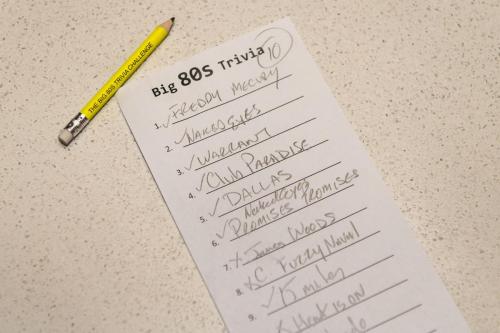 THE BIG 80S TRIVIA CHALLENGE
Big 80s Trivia
10
1. ✓ FREDDY MCCURY
2. ✓ NAKED EYES
3. ✓ WARRANT
4. ✓ Club PARADISE
5. ✓ DALLAS
Naked Eyes
6. ✓ PROMISES PROMISES
7. X James WOODS
8. X C FUZZY Naval
9. ✓ 15 miles